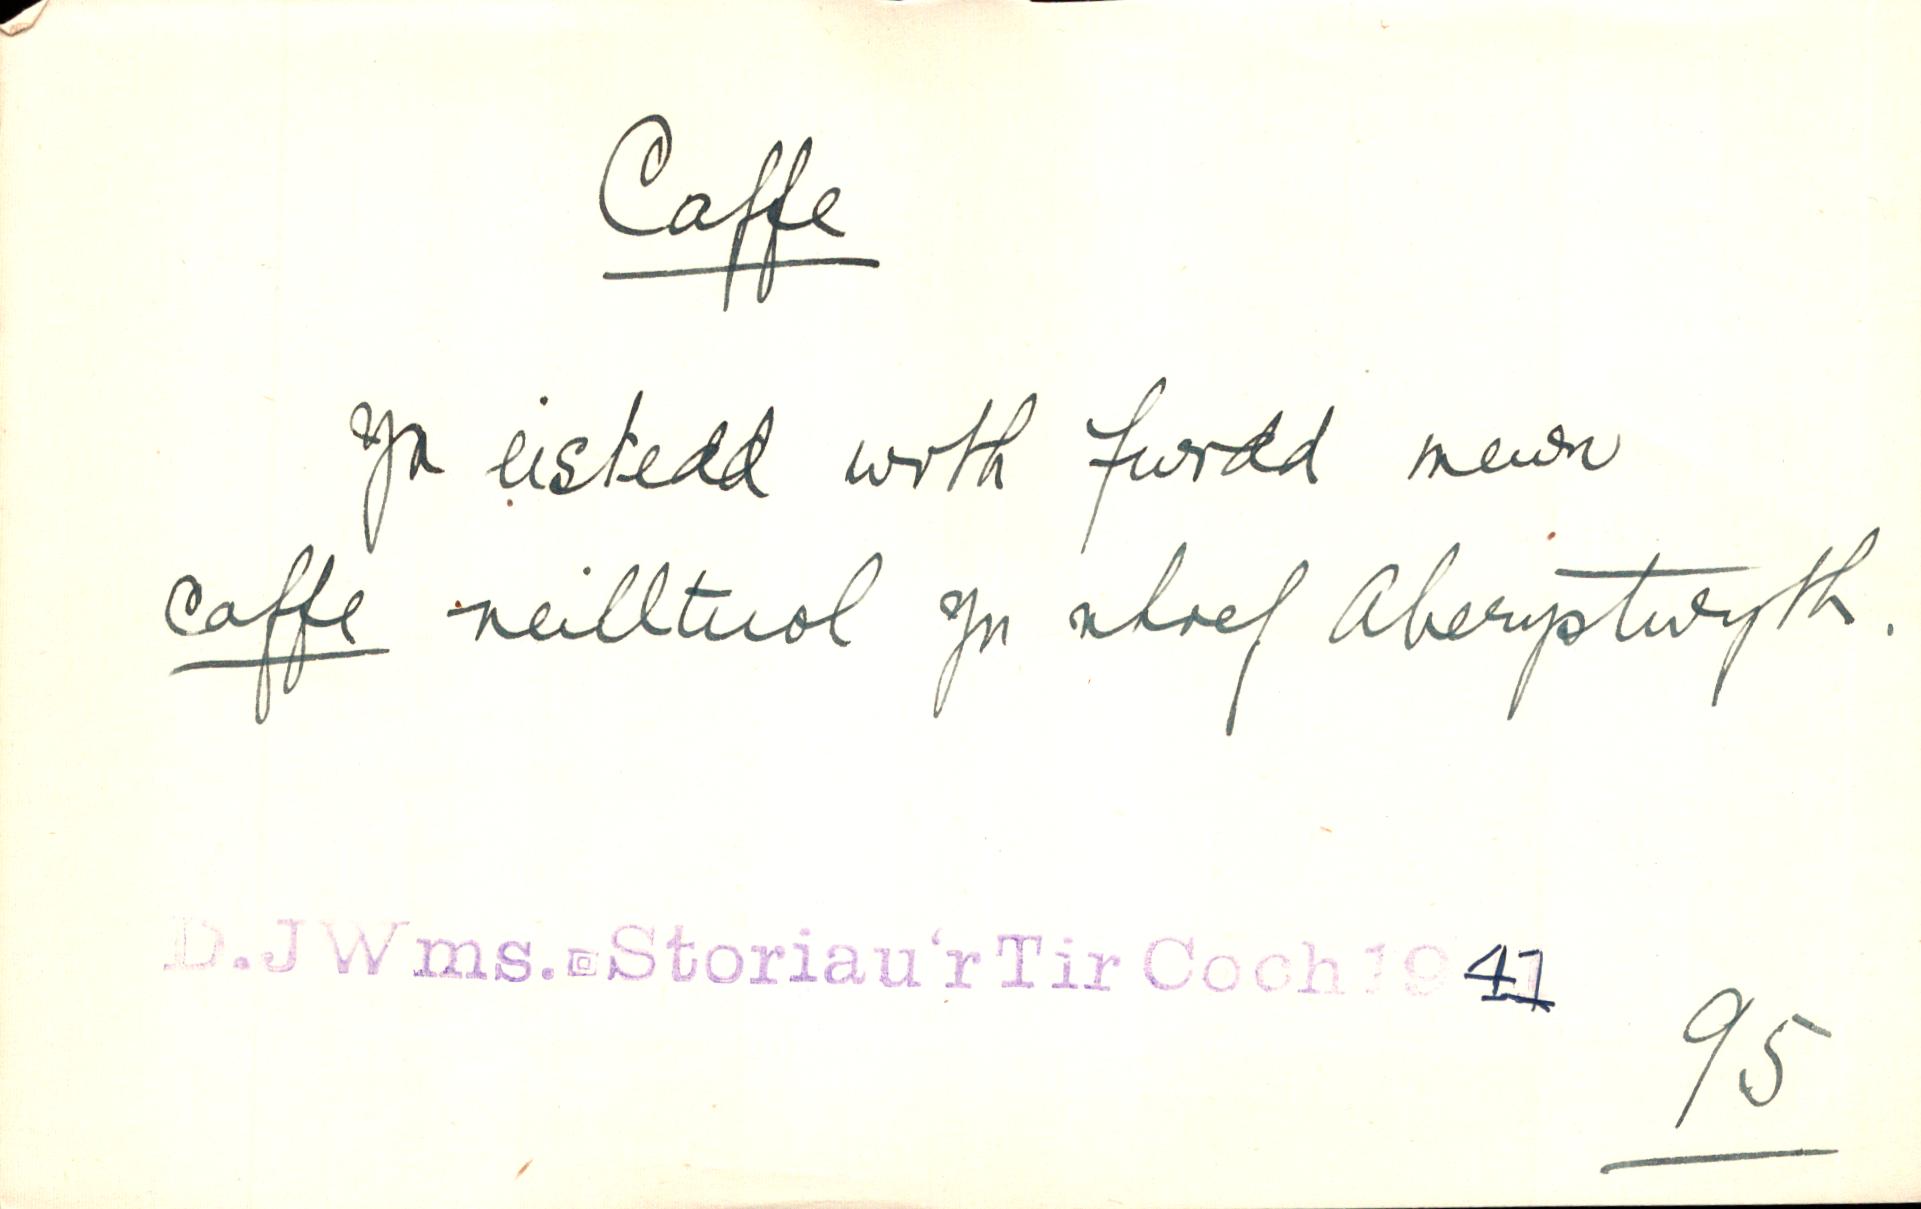 Caffe
Yn eistedd wrth fwrdd mewn
caffe neilltuol yn nhref Aberystwyth.
D.J Wms. Storiau'r Tir Coch 1941
95